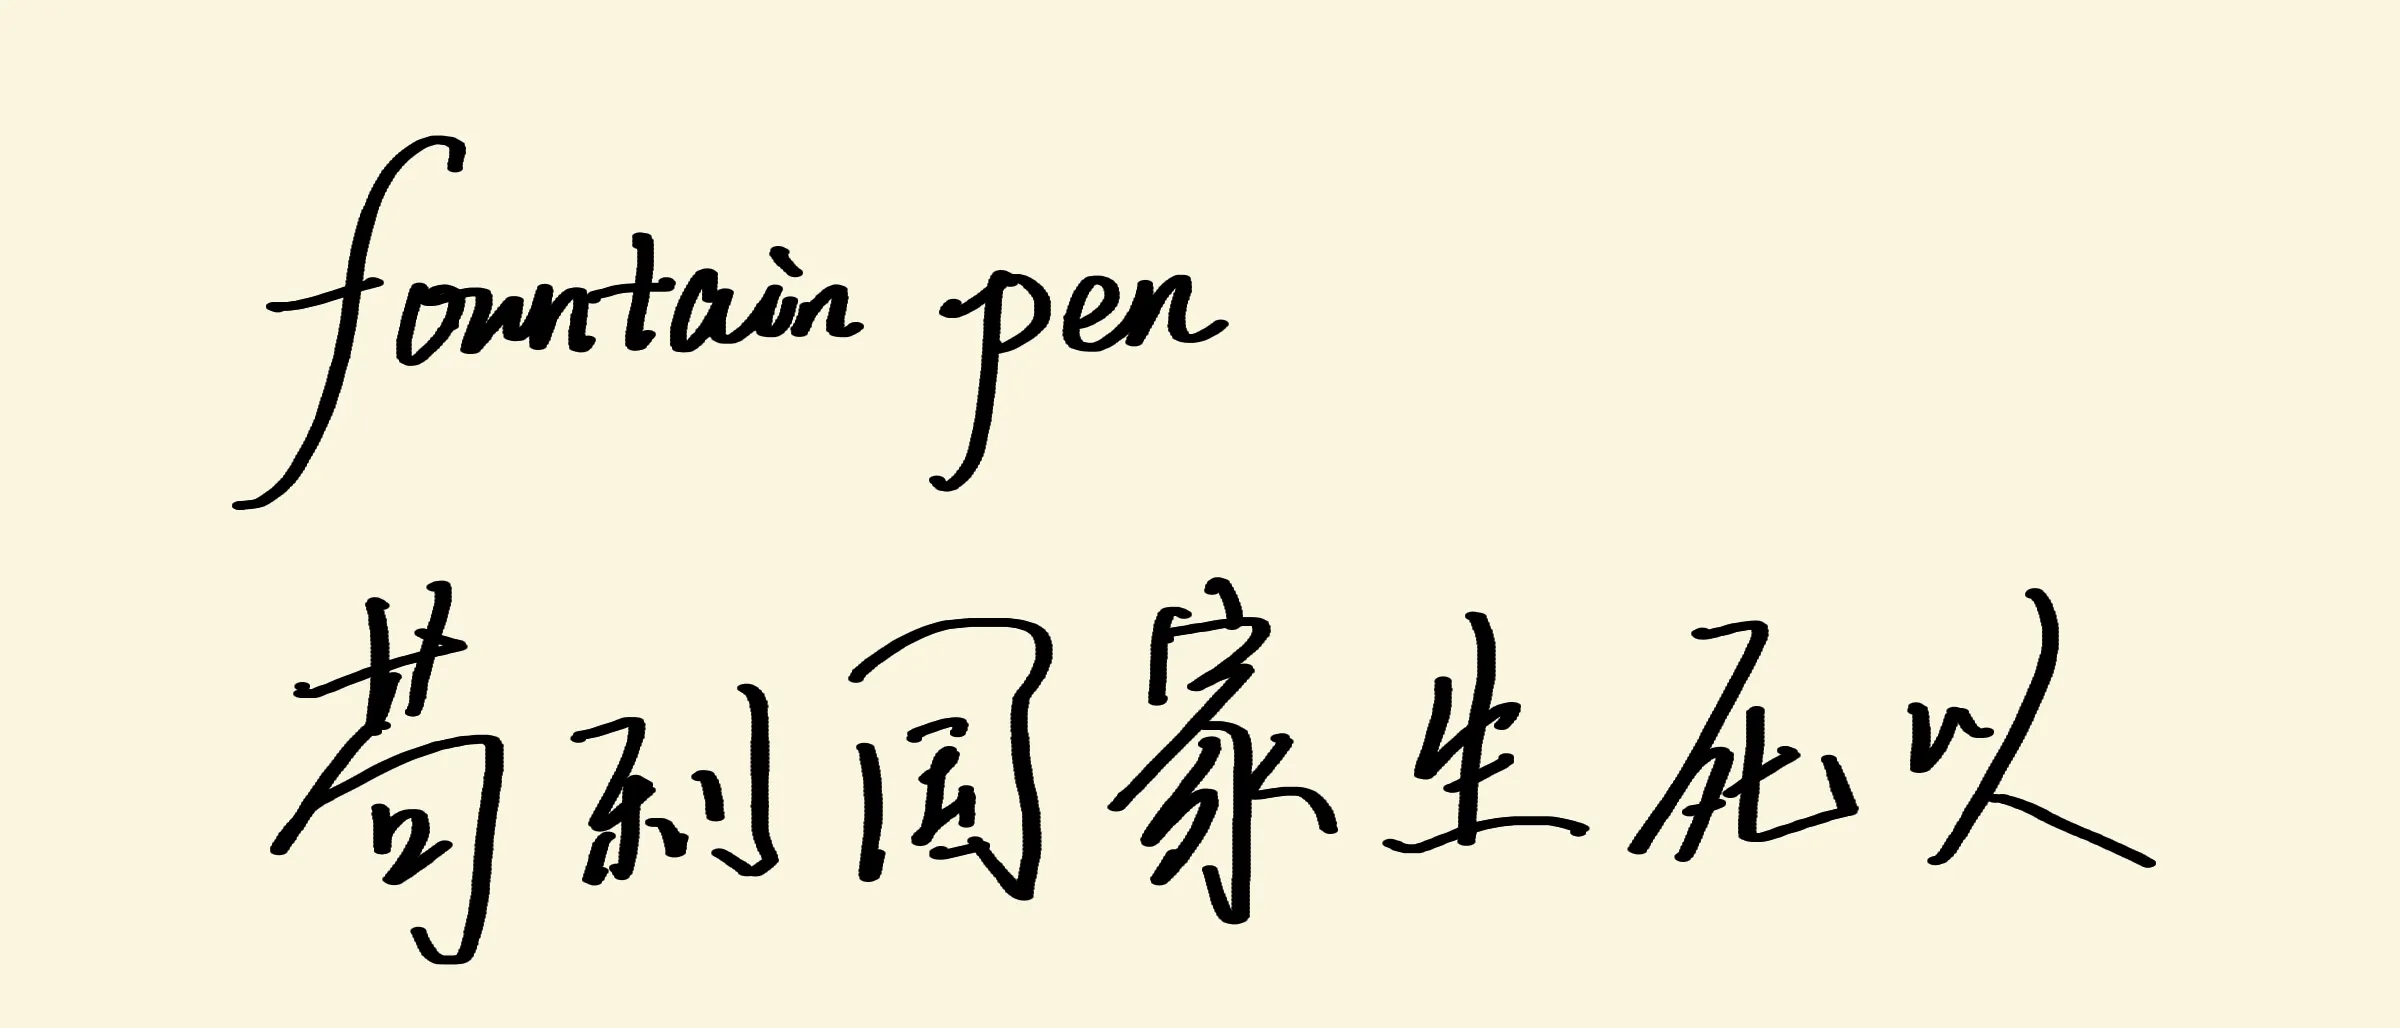 fountain pen
苟利国家生死以